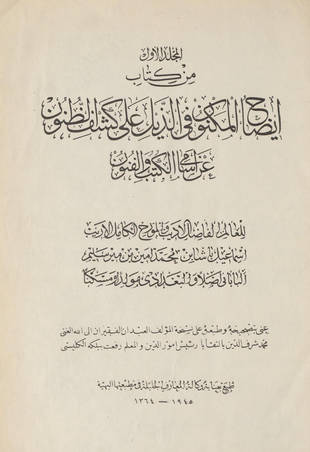 المجلد الأول
من كتاب
إيضاح المكنون في الذيل على كشف الظنون
عن أسامي الكتب والفنون
للعالم الفاضل الأديب والمؤرخ الكامل الأريب
إسماعيل باشا بن محمد أمين بن مير سليم
الباباني أصلا والبغدادي مولدا ومسكنا
عنى بتصحيحه وطبعه على نسخة المؤلف العبدان الفقيران إلى الله الغنى
محمد شرف الدين بالتقايا رئيس أمور الدين والمعلم رفعت بيلكه الكليسى
طبع بعناية وكالة المعارف الجليلة في مطبعتها البهية
١٩٤٥ - ١٣٦٤